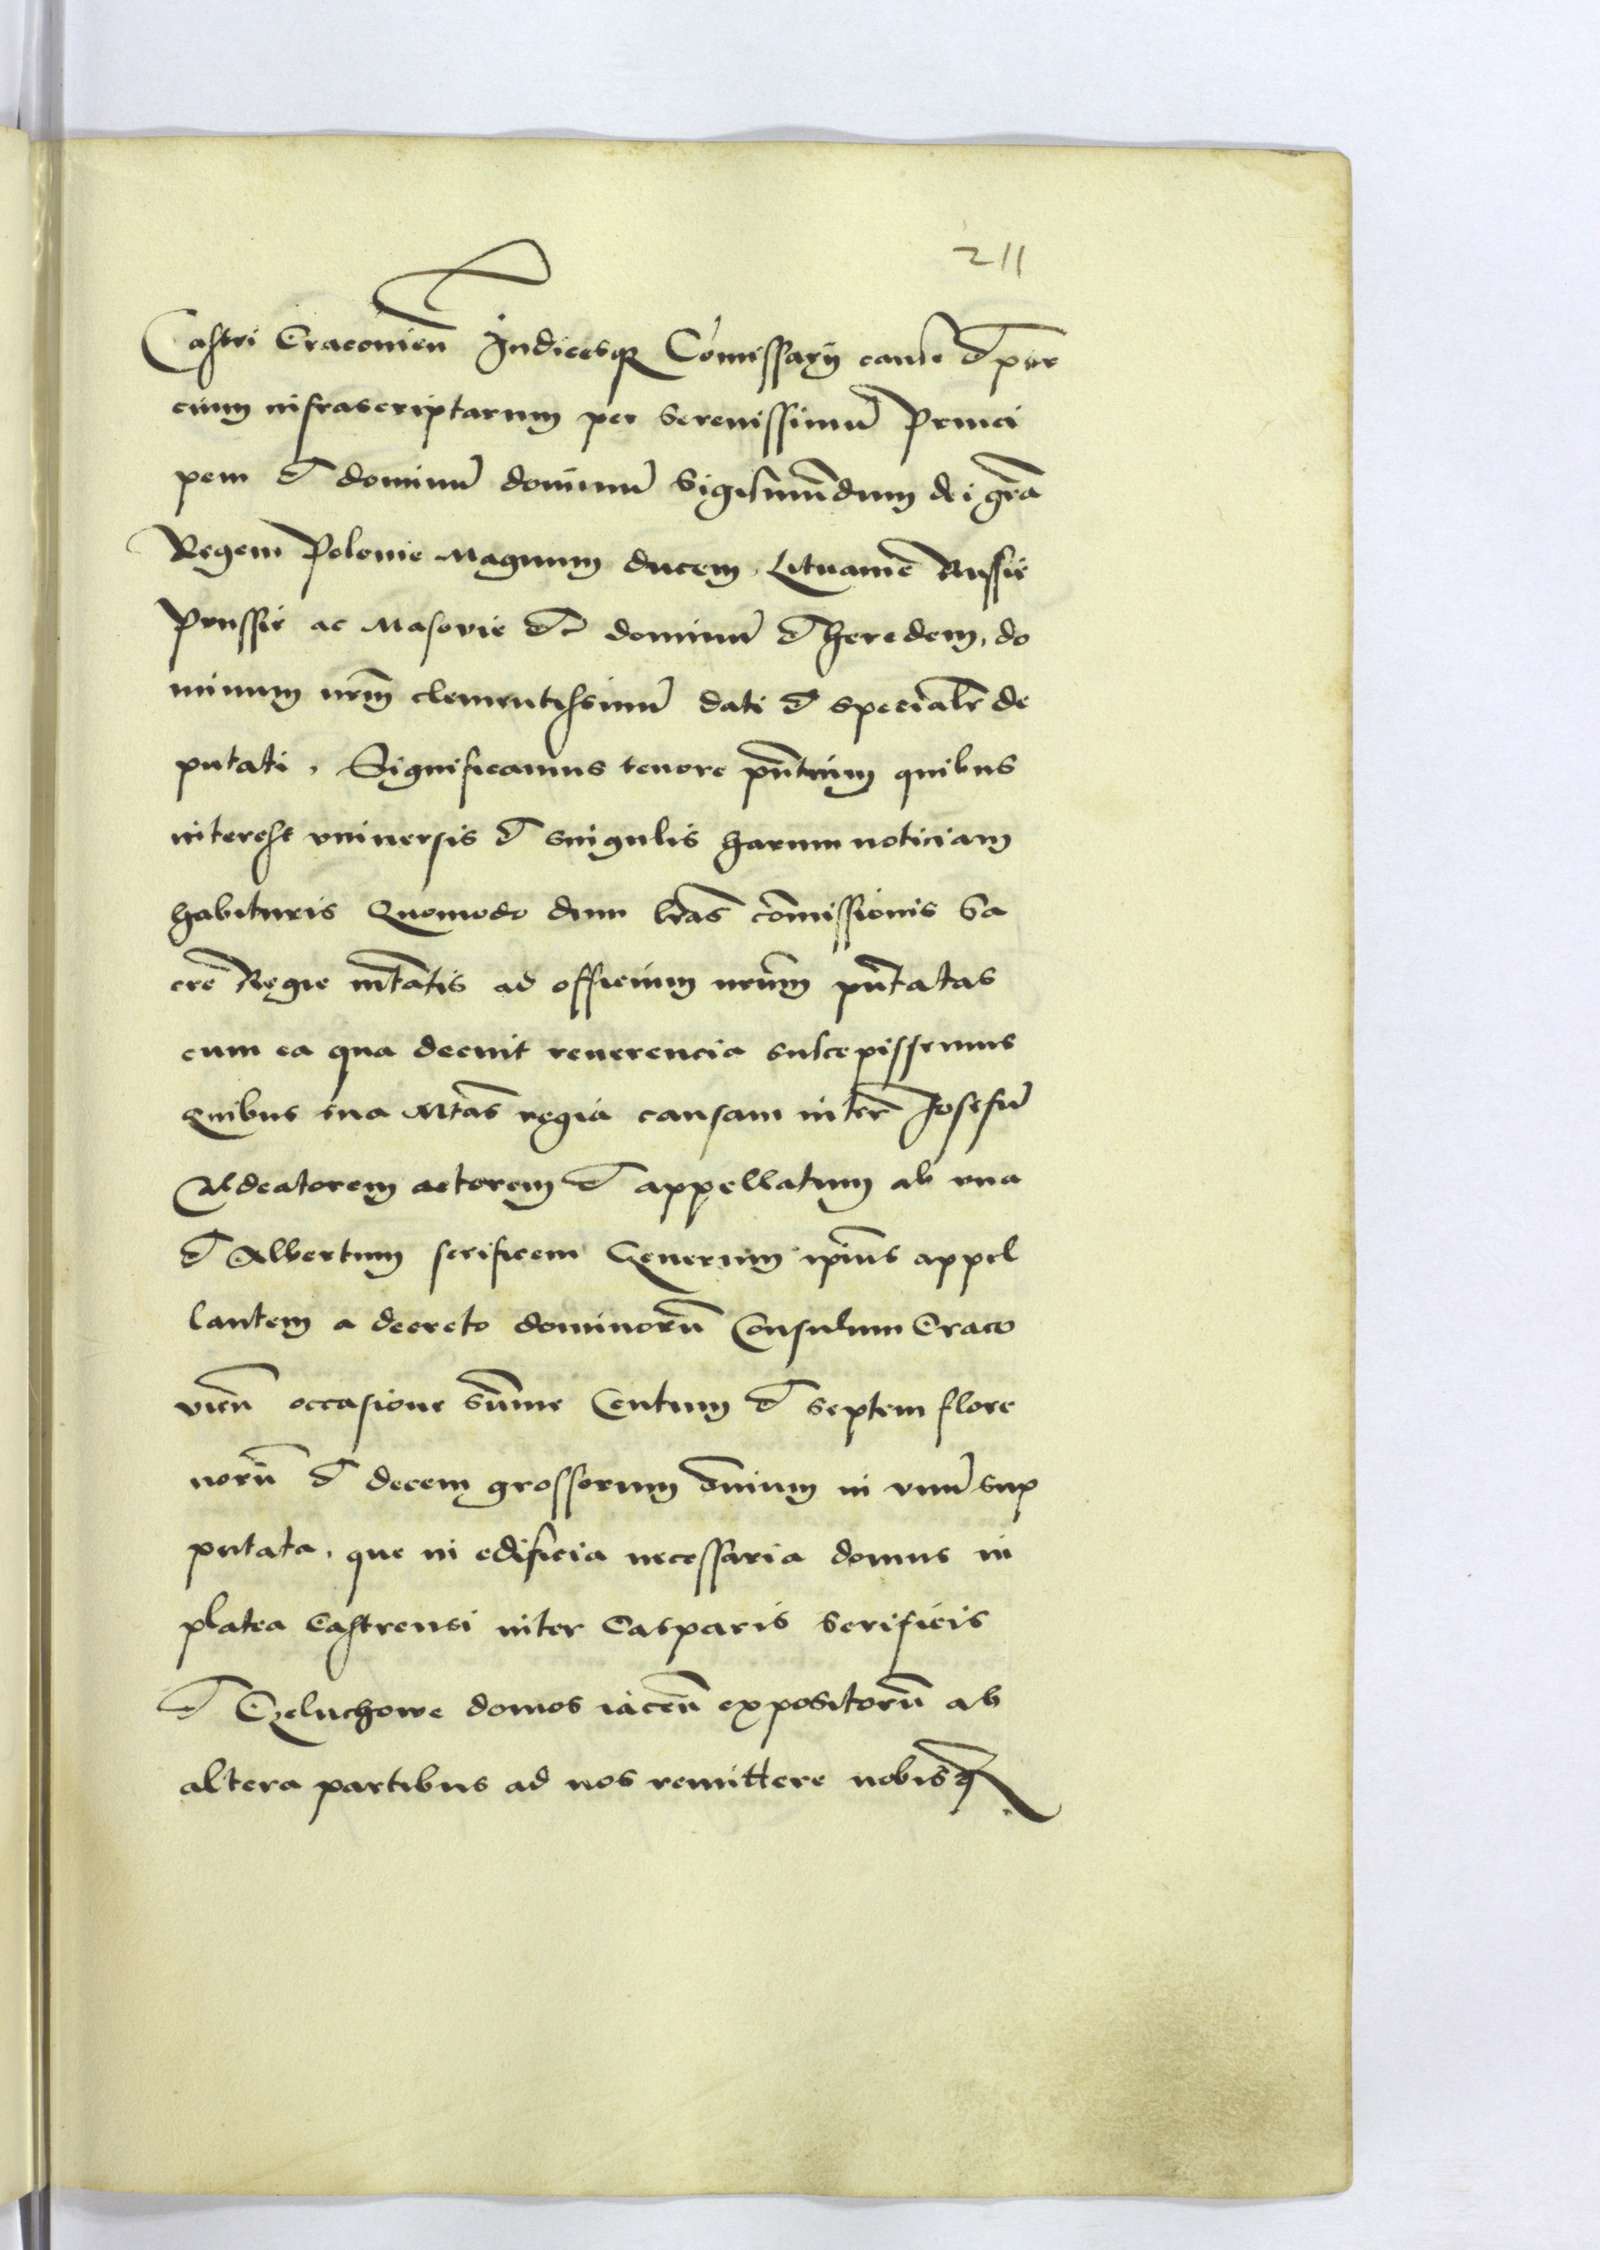 211
Castri Cracouien Iudicesqꝫ Comissarÿ cause et par
cium infrascriptarum per Serenissimū Princi
pem et dominū dominū Sigismūdum dei grā
Regem Polonie Magnum ducem Lituanie Russie
Prussie ac Masovie etc dominū et heredem, do
minum nrm̄ clementissimū dati et specialr̄ de
putati, Significamus tenore pn̄tium quibus
interest vniuersis et singulis harum noticiam
habituris Quomodo dum lrās com̄issionis Sa
cre Regie mtātis ad officium nrūm pn̄tatas
cum ea qua decuit reuerencia suscepissemus
Quibus sua Mtās regia causam inter Josefū
Aldeatorem actorem et appellatum ab vna
et Albertum serificem Generum ipīus appel
lantem a decreto dominorū Consulum Craco
vien̄ occasione sūme Centum et septem flore
norū et decem grossorum om̄ium in vnū sup
putata, que in edificia necessaria domus in
platea Castrensi inter Casparis Serificis
et Czeluchowe domos iacen̄ expositorū ab
altera partibus ad nos remittere nobisqꝫ